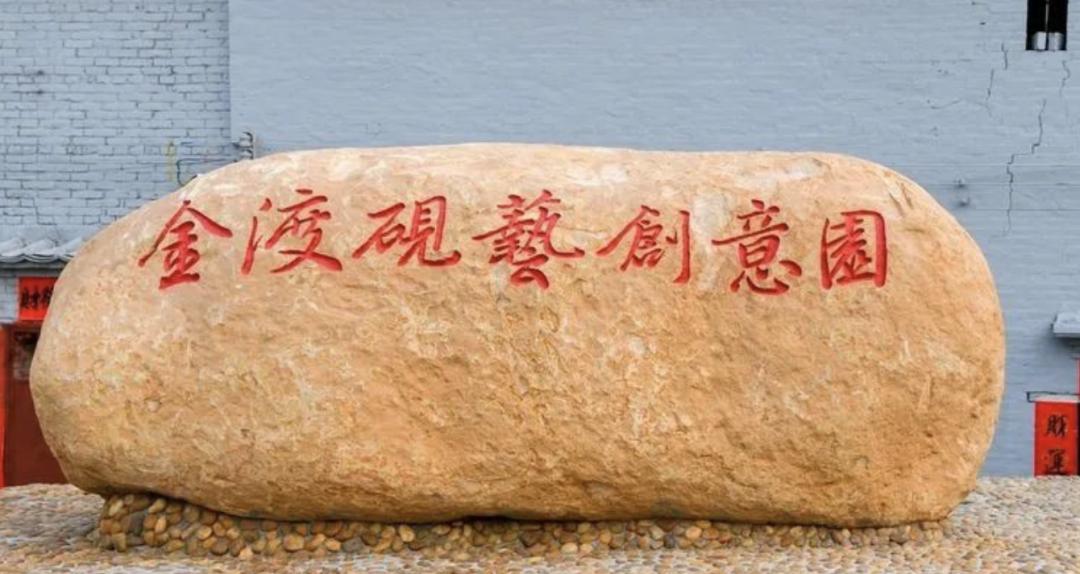 金渡硯藝創意園
財
財運